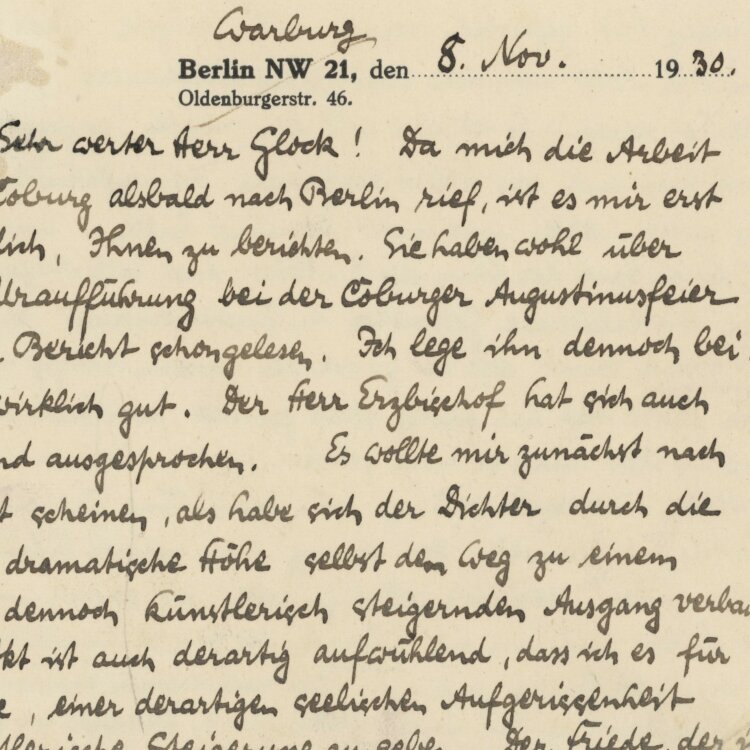 Warburg
Berlin NW 21, den 8. Nov. 1930.
Oldenburgerstr. 46.
Sehr werter Herr Glock! Da mich die Arbeit
Coburg alsbald nach Berlin rief, ist es mir erst
lich, Ihnen zu berichten. Sie haben wohl über
Uraufführung bei der Coburger Augustinusfeier
Bericht schon gelesen. Ich lege ihn dennoch bei
wirklich gut. Der Herr Erzbischof hat sich auch
nd ausgesprochen. Es wollte mir zunächst nach
t scheinen, als habe sich der Dichter durch die
dramatische Höhe selbst den Weg zu einem
dennoch künstlerisch steigernden Ausgang verbau
kt ist auch derartig aufwühlend, dass ich es für
e, einer derartigen seelischen Aufgerissenheit
tlerische Steigerung zu geben. Der Friede, der